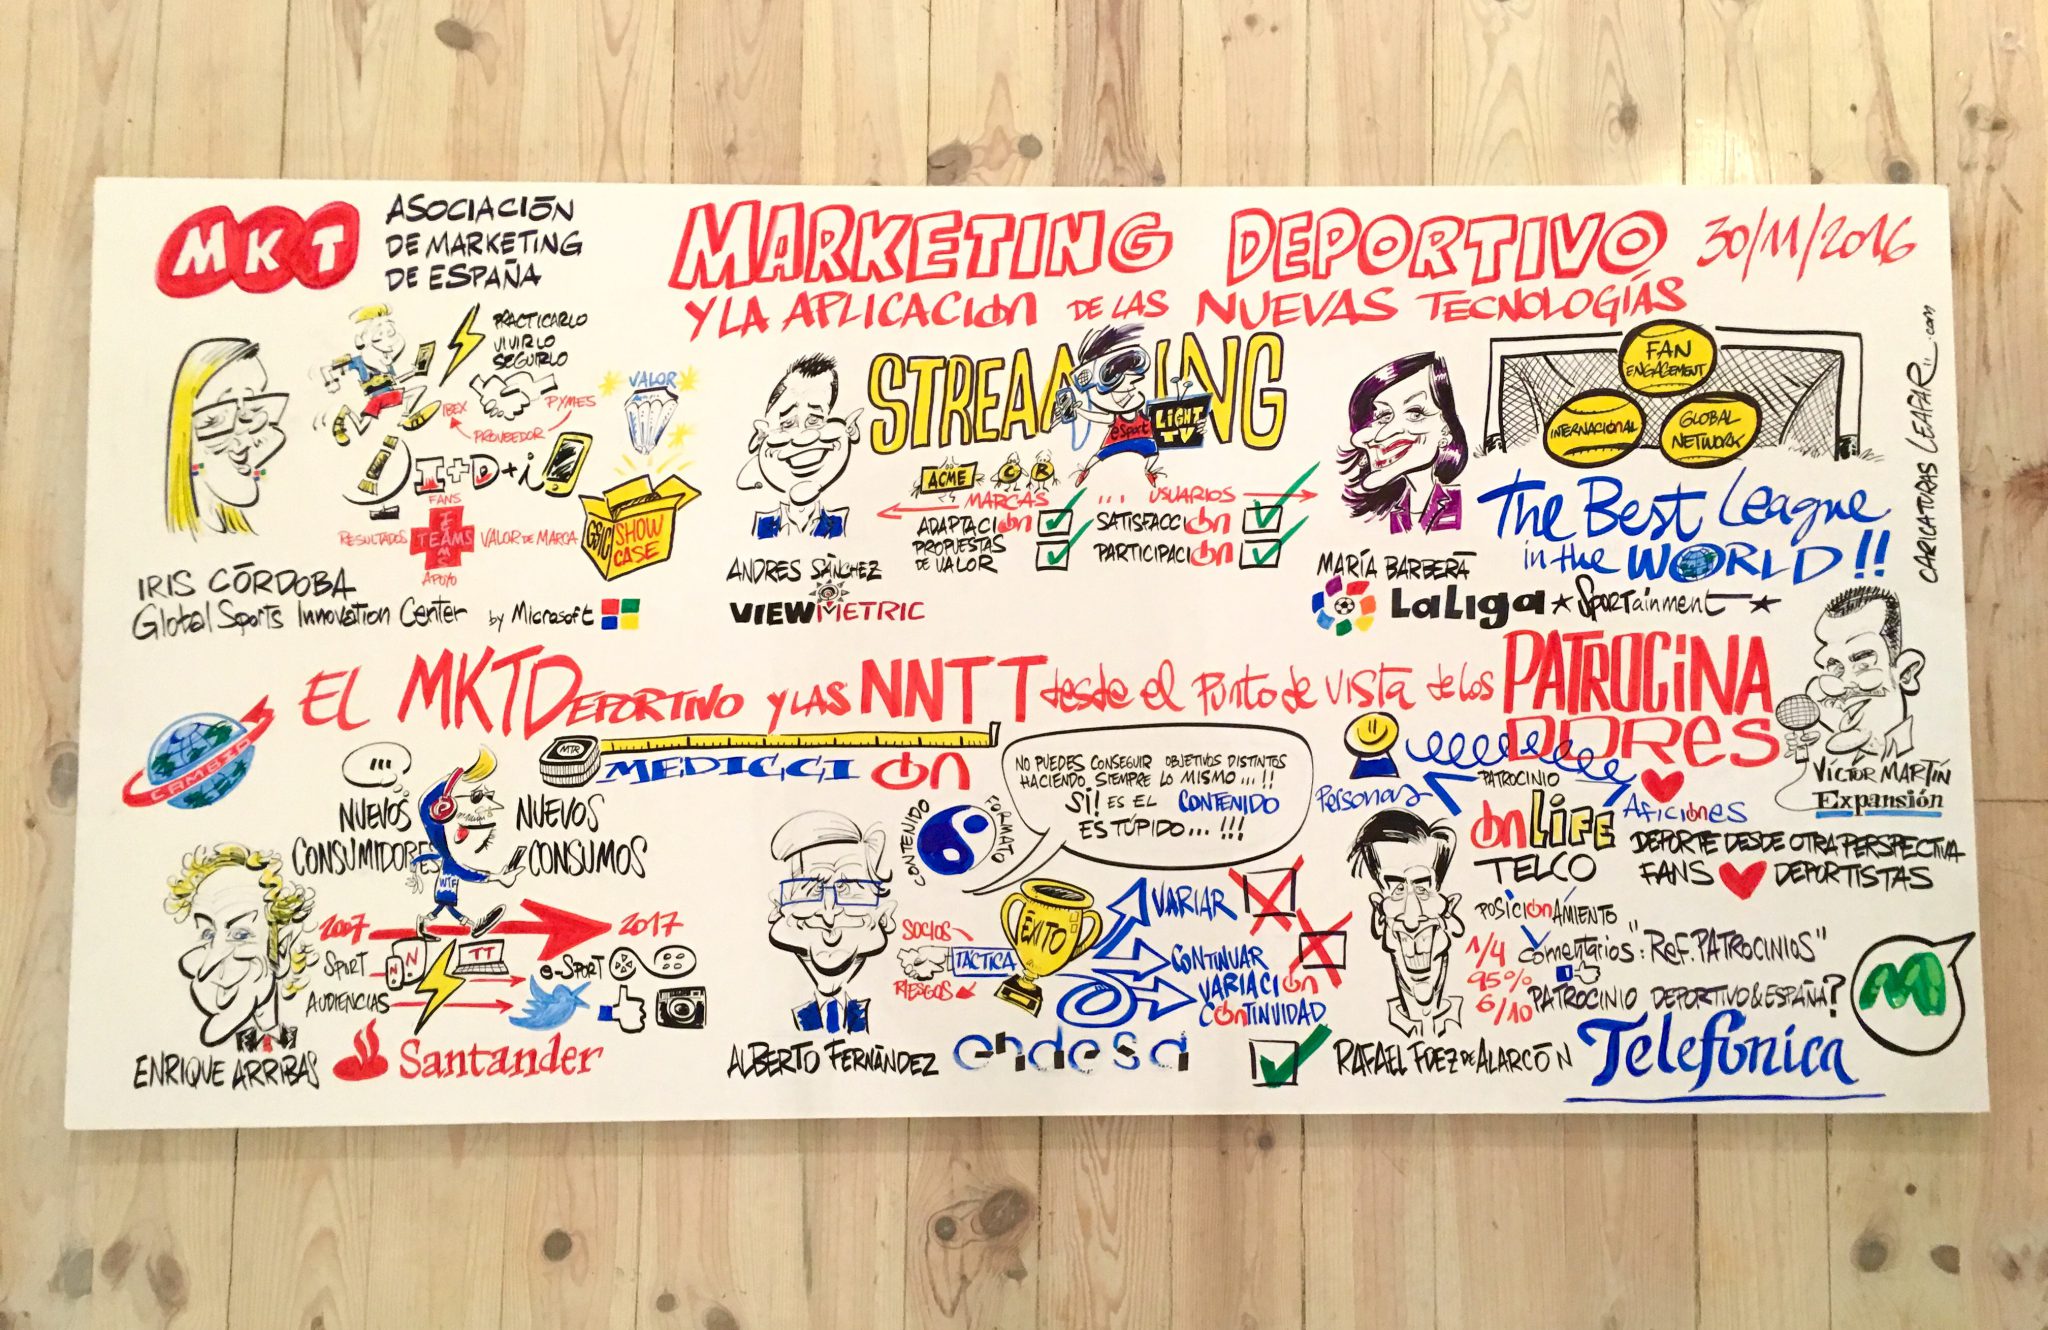 MKT
ASOCIACIÓN
DE MARKETING
DE ESPAÑA
MARKETING DEPORTIVO 30/11/2016
Y LA APLICACIÓN DE LAS NUEVAS TECNOLOGÍAS
PRACTICARLO
VIVIRLO
SEGUIRLO
IBEX
PYMES
PROVEEDOR
VALOR
I+D+i
FANS
RESULTADOS
TEAMS
TEAMS
VALOR DE MARCA
APOYO
GSIC
SHOW
CASE
IRIS CÓRDOBA
Global Sports Innovation Center by Microsoft
STREAMING
eSport
LIGHT
TV
ACME
C
R
MARCAS ... USUARIOS
ADAPTACIÓN
PROPUESTAS
DE VALOR
SATISFACCIÓN
PARTICIPACIÓN
ANDRES SÁNCHEZ
VIEWMETRIC
FAN
ENGAGEMENT
INTERNACIONAL
GLOBAL
NETWORK
The Best League
in the WORLD!!
MARÍA BARBERÁ
LaLiga ★ Sportainment ★
CARICATURAS LEAFAR...com
EL MKT DEPORTIVO Y LAS NNTT desde el punto de vista de los PATROCINA
DORES
VÍCTOR MARTÍN
Expansión
CAMBIO
...
NUEVOS
CONSUMIDORES
NUEVOS
CONSUMOS
WTF
MTR
MEDICCIÓN
2007
2017
SPORT
N
N
TT
e-SPORT
AUDIENCIAS
ENRIQUE ARRIBAS
Santander
CONTENIDO
FORMATO
NO PUEDES CONSEGUIR OBJETIVOS DISTINTOS
HACIENDO SIEMPRE LO MISMO...!!
SI! ES EL CONTENIDO
ESTÚPIDO...!!!
SOCIOS
TÁCTICA
RIESGOS
ÉXITO
VARIAR
CONTINUAR
VARIACIÓN
CONTINUIDAD
ALBERTO FERNÁNDEZ
endesa
Personas
PATROCINIO
Aficiones
ON LIFE
TELCO
DEPORTE DESDE OTRA PERSPECTIVA
FANS ♥ DEPORTISTAS
POSICIONAMIENTO
1/4 Comentarios: "Ref. PATROCINIOS"
95%
6/10 PATROCINIO DEPORTIVO & ESPAÑA?
RAFAEL FDEZ DE ALARCÓN
Telefónica
M